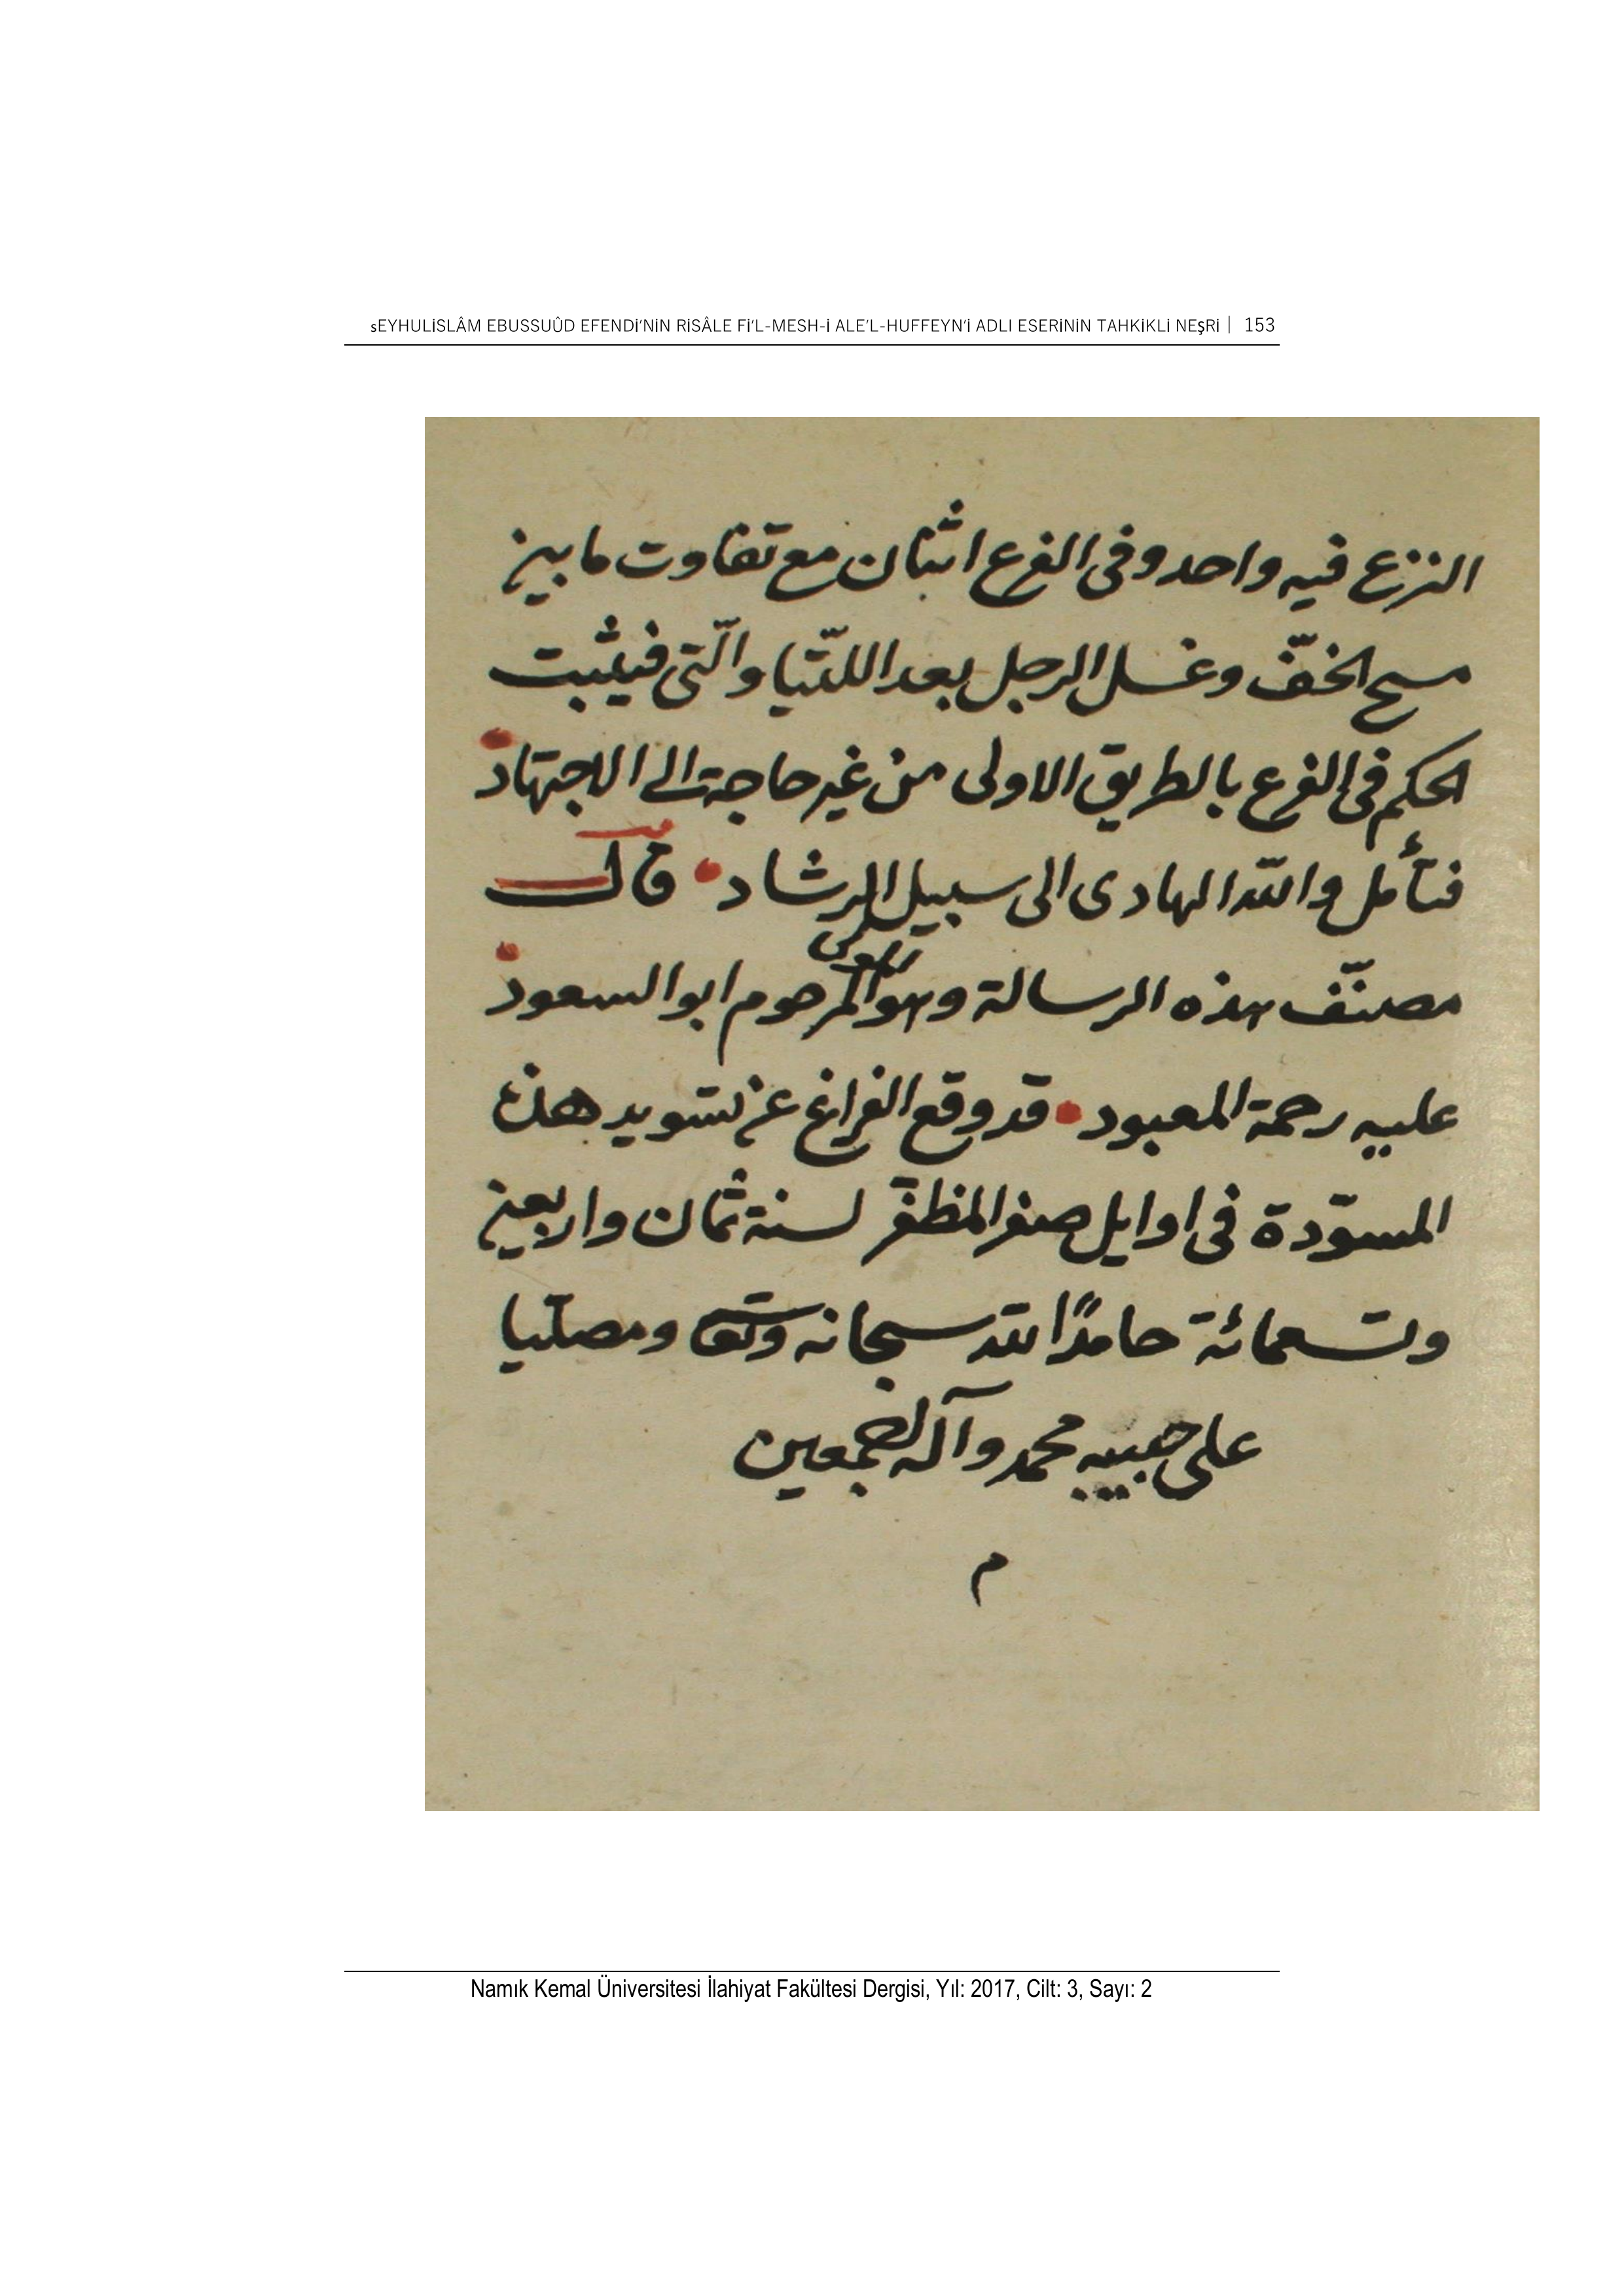 ŞEYHULİSLÂM EBUSSUÛD EFENDİ'NİN RİSÂLE Fİ'L-MESH-İ ALE'L-HUFFEYN'İ ADLI ESERİNİN TAHKİKLİ NEŞRİ | 153
النزع فيه واحد وفى الفرع اثنان مع تفاوت ما بين
مسح الخفّ وغسل الرجل بعد اللتّيا والّتى فيثبت
الحكم فى الفرع بالطريق الاولى من غير حاجة الى الاجتهاد
فتأمل والله الهادى الى سبيل الرشاد قال
مصنّف هذه الرسالة وهو المرحوم ابو السعود
عليه رحمة المعبود قد وقع الفراغ عن تسويد هذه
المسوّدة فى اوايل صفر المظفّر لسنة ثمان واربعين
وتسعمائة حامدًا لله سبحانه وتعا ومصلّيا
على حبيبه محمد وآله اجمعين
م
Namık Kemal Üniversitesi İlahiyat Fakültesi Dergisi, Yıl: 2017, Cilt: 3, Sayı: 2